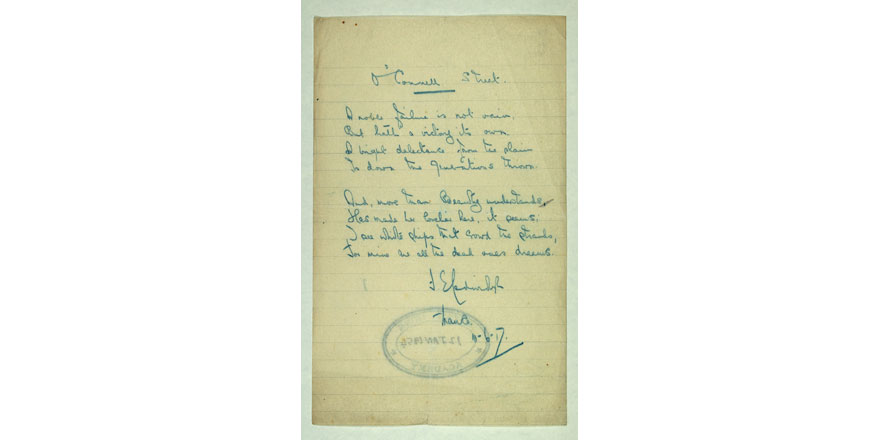 O'Connell Street.
A noble failure is not vain,
But hath a victory its own.
A bright delectance from the slain
Is down the generations thrown.
And, more than Beauty understands,
Has made her lovelier here, it seems.
I see white ships that crowd the strands,
For mine are all the dead men's dreams.
F E Ledwidge
France.